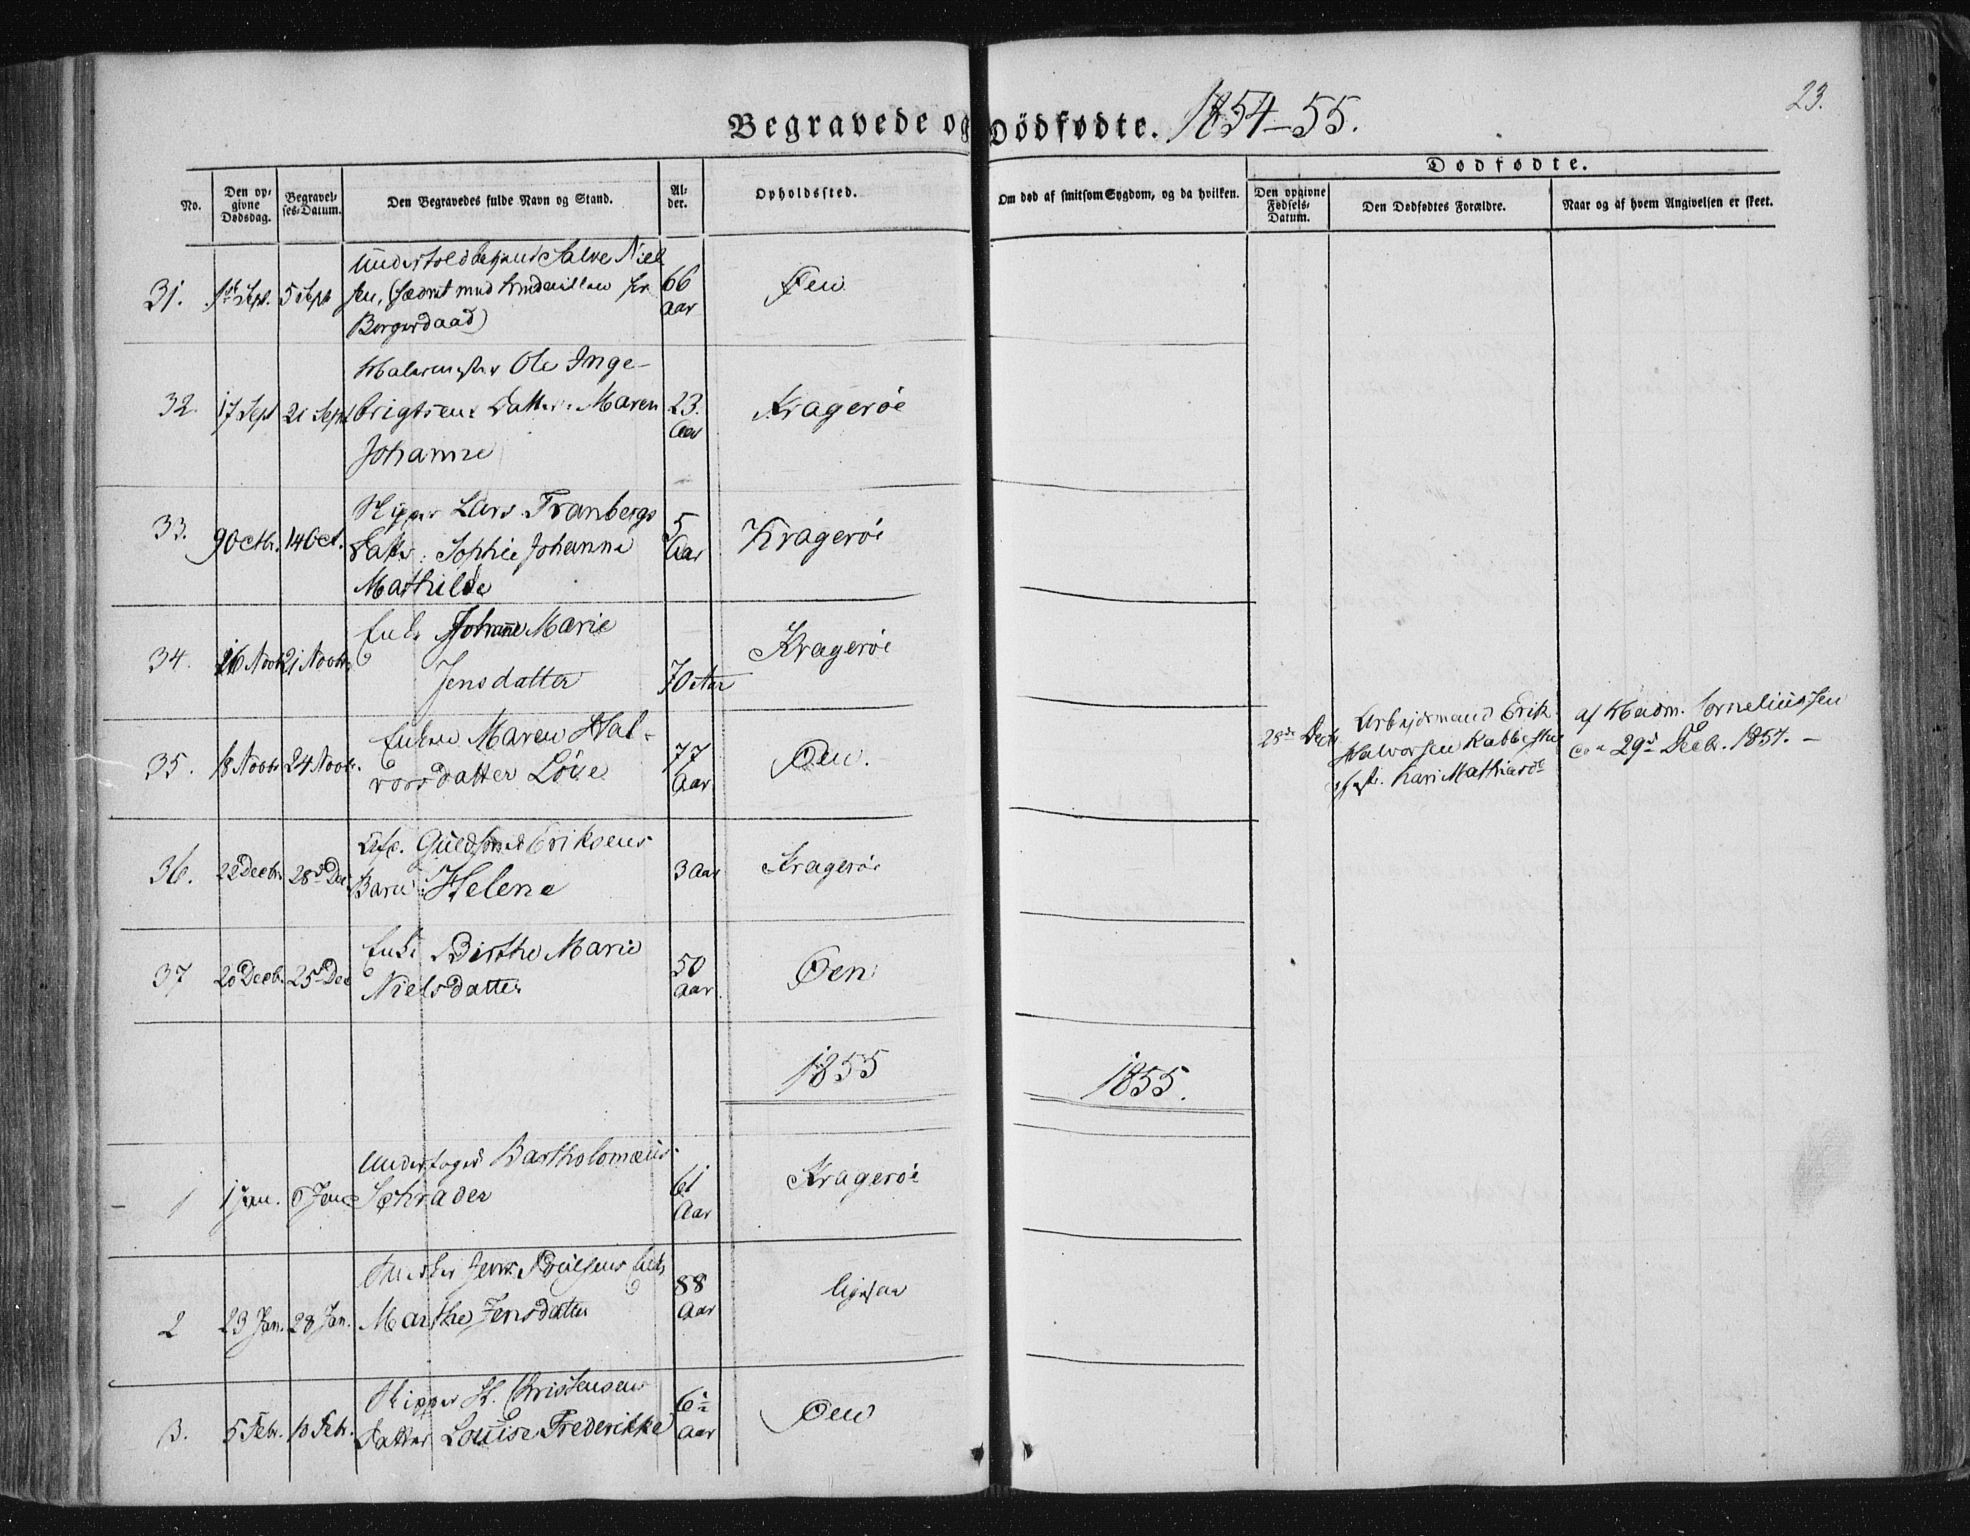 23.
Begravede og Dödfødte. 1854–55.
Dødfødte.
No.
Den op-
givne
Dødsdag.
Begravel-
ses-Datum.
Den Begravedes fulde Navn og Stand.
Al-
der.
Opholdssted.
Om død af smitsom Sygdom, og da hvilken.
Den opgivne
Fødsels-
Datum.
Den Dødfødtes Forældre.
Naar og af hvem Angivelsen er skeet.
31. 1ste Sept. 5 Sept Undertoldbetjent Salve Niel
sen, (hædret med Medaillen for 66
Borgerdaad) Aar Øen
32. 17 Sept 21 Sept Malermester Ole Inge-
brigtsens Datter: Maren 23.
Johanne Aar Kragerøe
33. 9 Octbr. 14 Oct. Skipper Lars Tranbergs 5
Datter: Sophie Johanne Aar
Mathilde Kragerøe
34. 16 Novbr 21 Novbr Enke Johanne Marie
Jensdatter 70 Aar Kragerøe
35. 18 Novbr 24 Novbr. Enken Maren Hal-
vorsdatter Löise 77
Aar Øen.
28de Decbr Arbejdsmand Erik
Halvorsen Kabbesten
Kari Mathiasd
af Cornelius­sen
29de Decbr. 1854. –
36. 22 Decbr. 28de Dec Guldsmed Eriksens
Barn: Helene 3 Aar Kragerøe
37 20 Decbr. 25de Dec Enke Birthe Marie
Nielsdatter 50
Aar. Øen
1855 1855.
1 1 Jan. 6 Jan Undertoger Bartholomæus
Schrader 61
Aar Kragerøe
2 23 Jan. 28 Jan. Jens Poulsens Enke
Marthe Jensdatter 88
Aar
3. 5 Febr. 10 Febr. Skipper H. Christensens
Datter Louise Frederikke 6½
Aar Øen